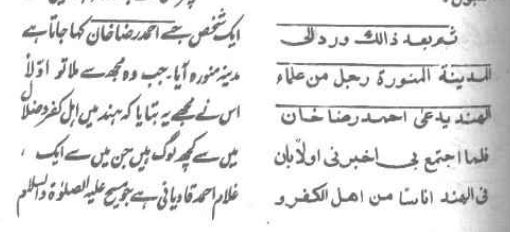 ثم بعد ذالك ورد الى
المدينة المنورة رجل من علماء
الهند يدعى احمد رضا خان
فلما اجتمع بى اخبرنى اولا بان
فى الهند اناسا من اهل الكفر و
ایک شخص جسے احمد رضا خان کہا جاتا ہے
مدینہ منورہ آیا۔ جب وہ مجھ سے ملا تو اولاً
اس نے مجھے یہ بتایا کہ ہند میں اہل کفر و ضلال
میں سے کچھ لوگ ہیں جن میں سے ایک
غلام احمد قادیانی ہے جو مسیح علیہ الصلوٰۃ والسلام